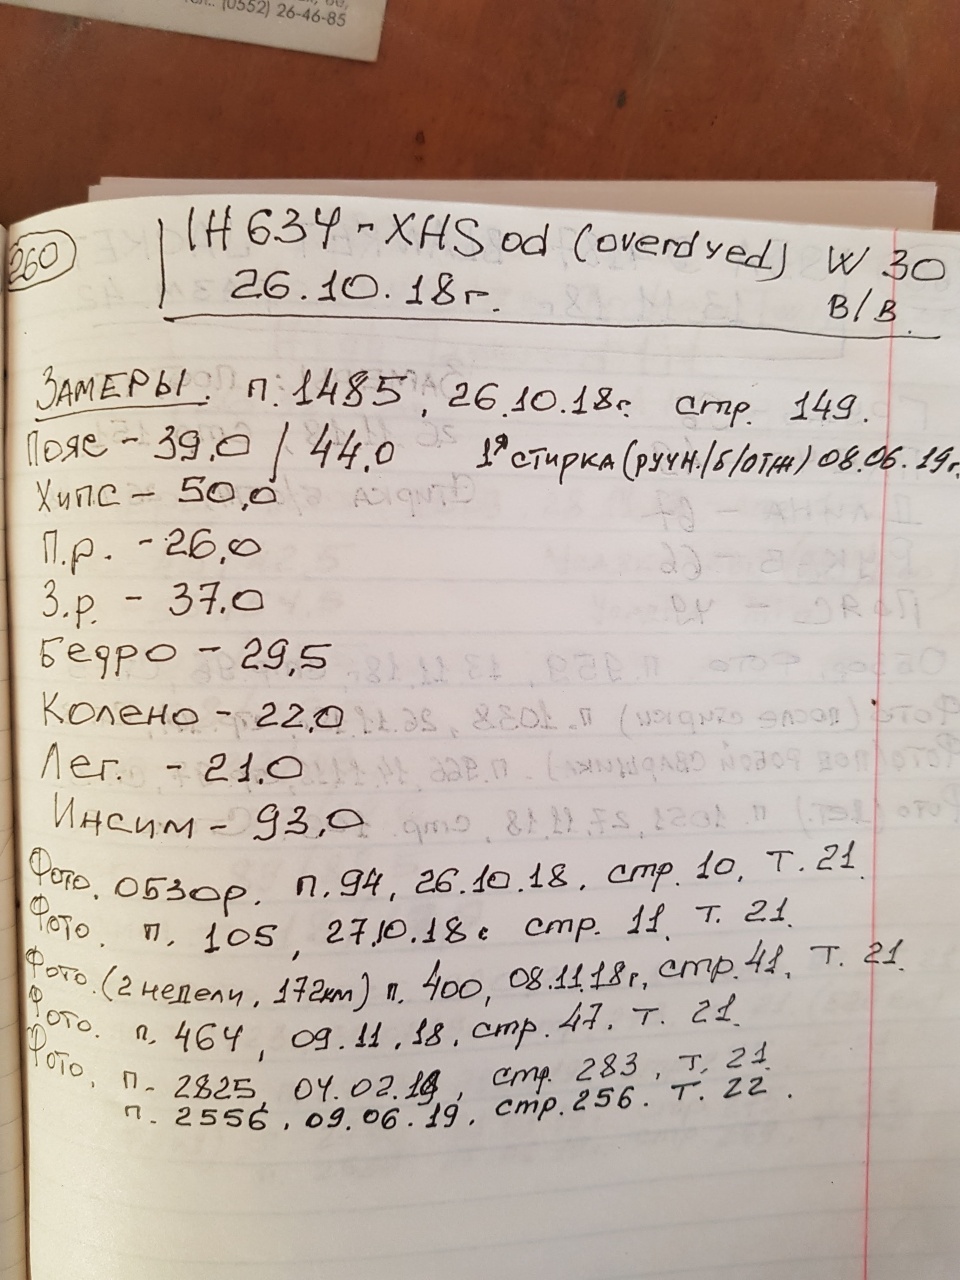 (0552) 26-46-85
260
IH 634 - XHS od (overdyed) W 30
26.10.18г. В/В.
ЗАМЕРЫ. п. 1485, 26.10.18г. стр. 149.
Пояс - 39,0 / 44,0 1я стирка (ручн./б/отж) 08.06.19г.
Хипс - 50,0
П.р. - 26,0
З.р. - 37.0
Бедро - 29,5
Колено - 22,0
Лег. - 21.0
Инсим - 93,0
Фото. ОБЗОР. п. 94, 26.10.18. стр. 10, Т. 21.
Фото. п. 105, 27.10.18г стр. 11. Т. 21.
Фото. (2 недели, 172км) п. 400, 08.11.18г, стр. 41, Т. 21.
Фото. п. 464, 09.11.18. стр. 47. Т. 21.
Фото. п. 2825, 04.02.19, стр. 283, Т. 21.
п. 2556, 09.06.19. стр. 256. Т. 22.